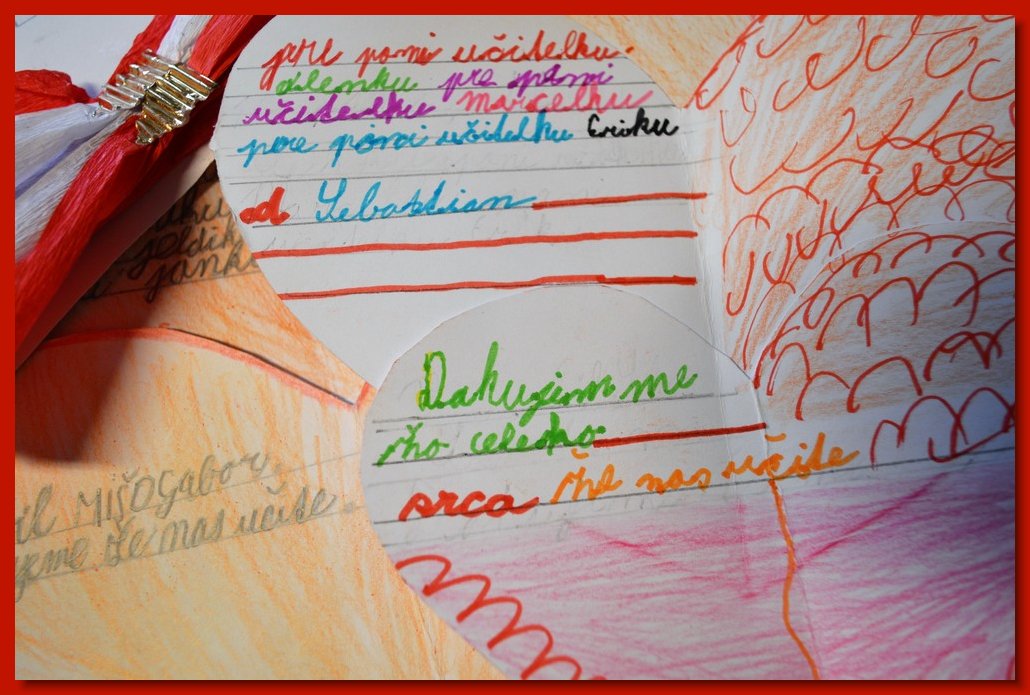 pre pani učitelku.
alenku pre pani
učitelku marcelku
pre pani učitelku Eriku
od Sebastian
jankc
Dakujemme
zho celeého
srca že nas učite
il MIŠOGabor.
jeme že nas učite.